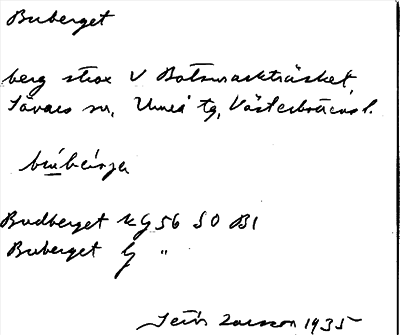 Buberget
berg strax V Botsmarkträsket
Sävars sn, Umeå tg, Västerbottens l.
Budberget kg 56 SO Bl
Buberget G "
Larsson 1935